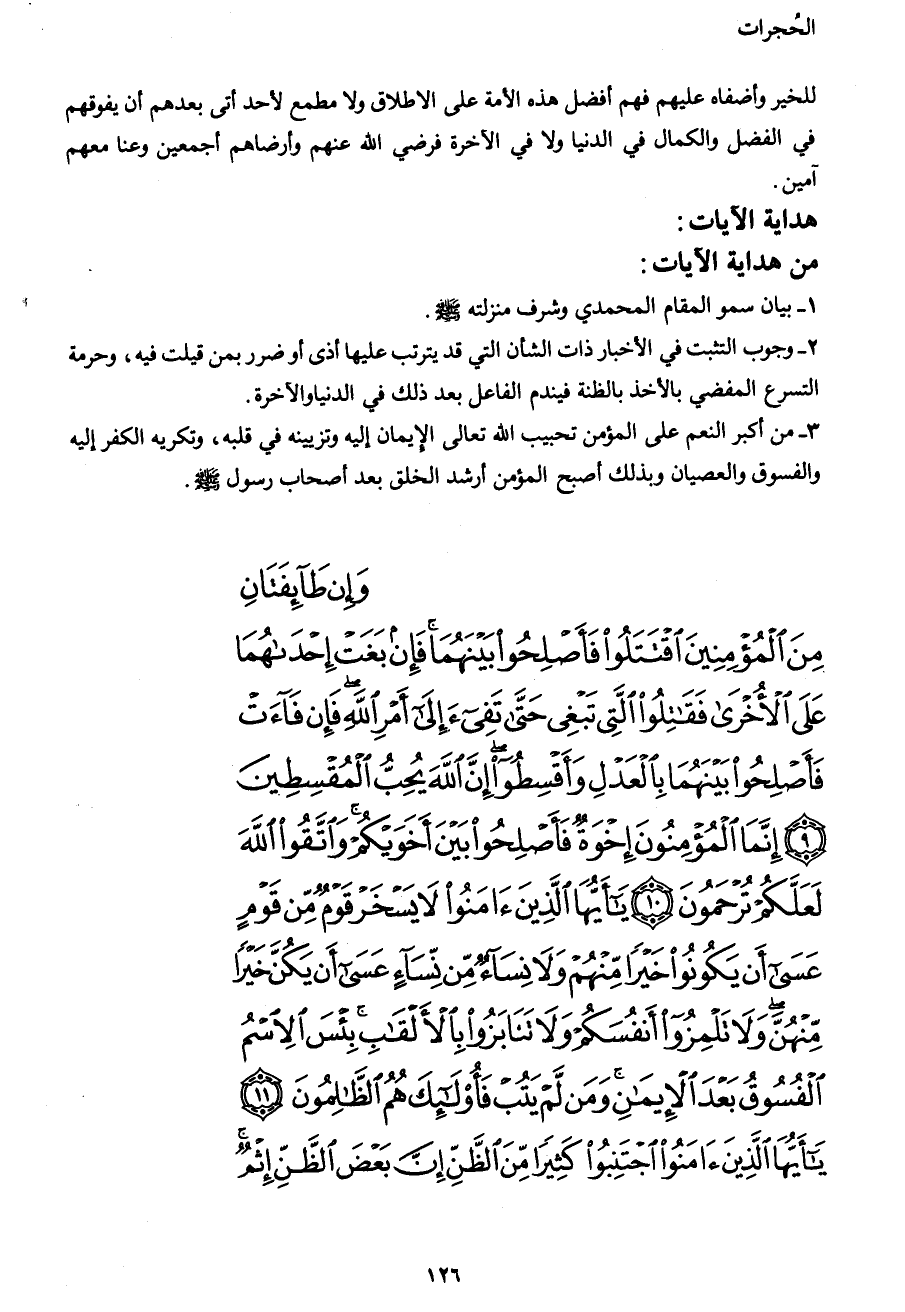 الحُجرات
للخير وأضفاه عليهم فهم أفضل هذه الأمة على الاطلاق ولا مطمع لأحد أتى بعدهم أن يفوقهم
في الفضل والكمال في الدنيا ولا في الآخرة فرضي الله عنهم وأرضاهم أجمعين وعنا معهم
آمين .
هداية الآيات :
من هداية الآيات :
١ـ بيان سمو المقام المحمدي وشرف منزلته ﷺ .
٢ـ وجوب التثبت في الأخبار ذات الشأن التي قد يترتب عليها أذى أو ضرر بمن قيلت فيه ، وحرمة
التسرع المفضي بالأخذ بالظنة فيندم الفاعل بعد ذلك في الدنياوالآخرة .
٣ـ من أكبر النعم على المؤمن تحبيب الله تعالى الإيمان إليه وتزيينه في قلبه ، وتكريه الكفر إليه
والفسوق والعصيان وبذلك أصبح المؤمن أرشد الخلق بعد أصحاب رسول ﷺ .
وَإِن طَآئِفَتَانِ
مِنَ ٱلْمُؤْمِنِينَ ٱقْتَتَلُوا۟ فَأَصْلِحُوا۟ بَيْنَهُمَا ۖ فَإِنۢ بَغَتْ إِحْدَىٰهُمَا
عَلَى ٱلْأُخْرَىٰ فَقَٰتِلُوا۟ ٱلَّتِى تَبْغِى حَتَّىٰ تَفِىٓءَ إِلَىٰٓ أَمْرِ ٱللَّهِ ۚ فَإِن فَآءَتْ
فَأَصْلِحُوا۟ بَيْنَهُمَا بِٱلْعَدْلِ وَأَقْسِطُوٓا۟ ۖ إِنَّ ٱللَّهَ يُحِبُّ ٱلْمُقْسِطِينَ
٩ إِنَّمَا ٱلْمُؤْمِنُونَ إِخْوَةٌ فَأَصْلِحُوا۟ بَيْنَ أَخَوَيْكُمْ ۚ وَٱتَّقُوا۟ ٱللَّهَ
لَعَلَّكُمْ تُرْحَمُونَ ١٠ يَٰٓأَيُّهَا ٱلَّذِينَ ءَامَنُوا۟ لَا يَسْخَرْ قَوْمٌ مِّن قَوْمٍ
عَسَىٰٓ أَن يَكُونُوا۟ خَيْرًا مِّنْهُمْ وَلَا نِسَآءٌ مِّن نِّسَآءٍ عَسَىٰٓ أَن يَكُنَّ خَيْرًا
مِّنْهُنَّ ۖ وَلَا تَلْمِزُوٓا۟ أَنفُسَكُمْ وَلَا تَنَابَزُوا۟ بِٱلْأَلْقَٰبِ ۚ بِئْسَ ٱلِٱسْمُ
ٱلْفُسُوقُ بَعْدَ ٱلْإِيمَٰنِ ۚ وَمَن لَّمْ يَتُبْ فَأُو۟لَٰٓئِكَ هُمُ ٱلظَّٰلِمُونَ ١١
يَٰٓأَيُّهَا ٱلَّذِينَ ءَامَنُوا۟ ٱجْتَنِبُوا۟ كَثِيرًا مِّنَ ٱلظَّنِّ إِنَّ بَعْضَ ٱلظَّنِّ إِثْمٌ ۖ
١٢٦